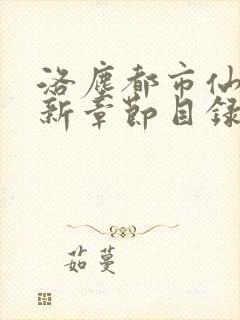 洛塵都市仙
新章節目錄
茹蔓